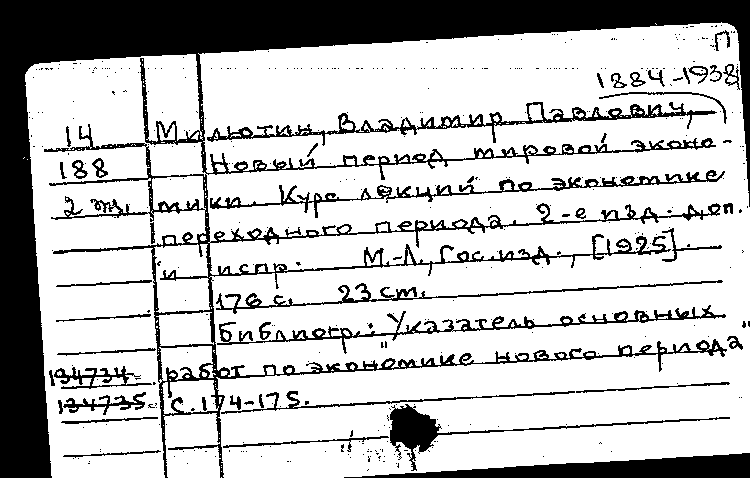 П
1884-1938
14 Милютин, Владимир Павлович,
188 Новый период мировой эконо-
2 экз. мики. Курс лекций по экономике
переходного периода. 2-е изд. доп.
и испр. М.-Л., Гос.изд., [1925].
176 с. 23 cm.
Библиогр.: "Указатель основных
134734 работ по экономике нового периода"
134735 с. 174-175.